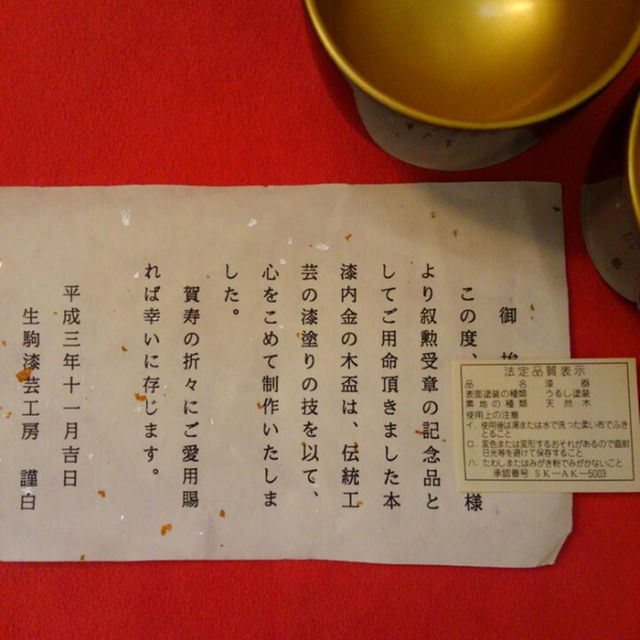 御
この度、
様
より叙勲受章の記念品と
してご用命頂きました本
漆内金の木盃は、伝統工
芸の漆塗りの技を以て、
心をこめて制作いたしま
した。
賀寿の折々にご愛用賜
れば幸いに存じます。
平成三年十一月吉日
生駒漆芸工房 謹白
法定品質表示
品名 漆器
表面塗装の種類 うるし塗装
素地の種類 天然木
使用上の注意
イ．使用後は湯または水で洗った柔い布でふき
とること
ロ．変色または変形するおそれがあるので直射
日光等を避けて保存すること
ハ．たわしまたはみがき粉でみがかないこと
承認番号 SK－AK－5003